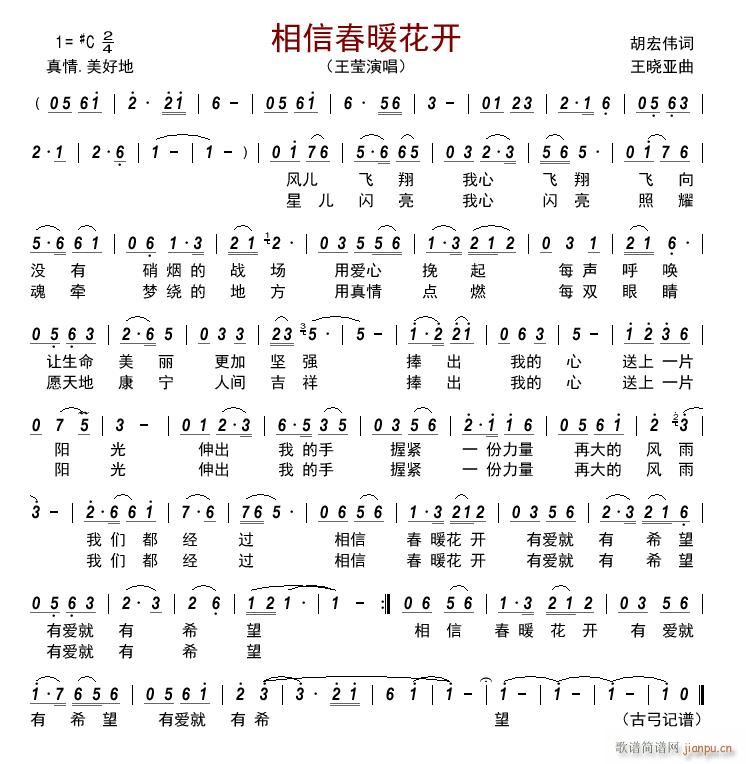 相信春暖花开
1= #C 2/4
胡宏伟词
真情.美好地
（王莹演唱）
王晓亚曲
( 0 5 6 1 | 2 · 2 1 | 6 · 1 2 3 | 0 3 6 1 | 6 · 5 6 | 3 - | 0 1 2 3 | 2 · 1 6 | 0 5 6 3 |
2 · 1 | 2 · 6 | 1 - | 1 - ) | 0 1 7 6 | 5 · 6 6 5 | 0 3 2 · 3 | 5 6 5 · | 0 1 7 6 |
风儿 飞 翔 我心 飞 翔 飞 向
星 儿 闪 亮 我心 闪 亮 照 耀
5 · 6 6 1 | 0 6 1 · 3 | 2 1 2 · | 0 3 5 5 6 | 1 · 3 2 1 2 | 0 3 1 | 2 1 6 · |
没 有 硝 烟 的 战 场 用爱心 挽 起 每 声 呼 唤
魂 牵 梦 绕 的 地 方 用真情 点 燃 每 双 眼 睛
0 5 6 3 | 2 · 6 5 | 0 6 3 | 2 3 5 · | 5 - | 1 · 2 2 1 | 0 6 3 | 5 - | 1 2 3 6 |
让生命 美 丽 更加 坚 强 捧 出 我的 心 送上 一片
愿天地 康 宁 人间 吉 祥 捧 出 我的 心 送上 一片
0 7 5 | 3 - | 0 1 2 · 3 | 6 · 5 3 | 0 3 5 6 | 2 · 1 1 6 | 0 5 6 1 | 2 2 · |
阳 光 伸出 我 的 手 握紧 一 份力量 再大的 风 雨
阳 光 伸出 我 的 手 握紧 一 份力量 再大的 风 雨
3 - | 2 · 6 6 1 | 7 · 6 | 7 6 5 · | 0 6 5 6 | 1 · 3 2 1 2 | 0 3 5 6 | 2 · 3 2 1 6 |
我 们 都 经 过 相信 春 暖花 开 有爱就 有 希 望
我 们 都 经 过 相信 春 暖花 开 有爱就 有 希 望
0 5 6 3 | 2 · 3 | 2 6 · | 1 2 1 · | 1 - :| 0 6 5 6 | 1 · 3 | 2 1 2 | 0 5 5 6 |
有爱就 有 希 望 相 信 春 暖 花 开 有爱就
有爱就 有 希 望
1 · 7 6 5 6 | 0 5 6 1 | 2 · 3 | 3 · 2 1 | 6 1 | 1 - | 1 - | 1 - | 1 - | 1 0 ‖
有 希 望 有爱就 有 希 望 （古弓记谱）
歌谱简谱网
jianpu.cn